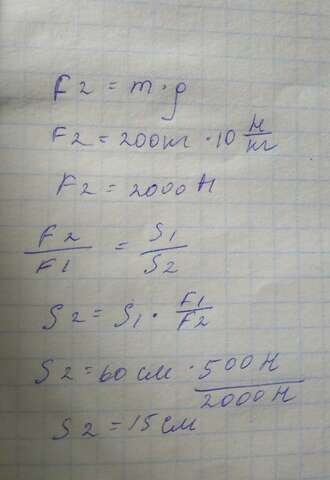 F2 = m·g
F2 = 200кг · 10 Н/кг
F2 = 2000Н
F2/F1 = S1/S2
S2 = S1 · F1/F2
S2 = 60 см · 500Н/2000Н
S2 = 15 см